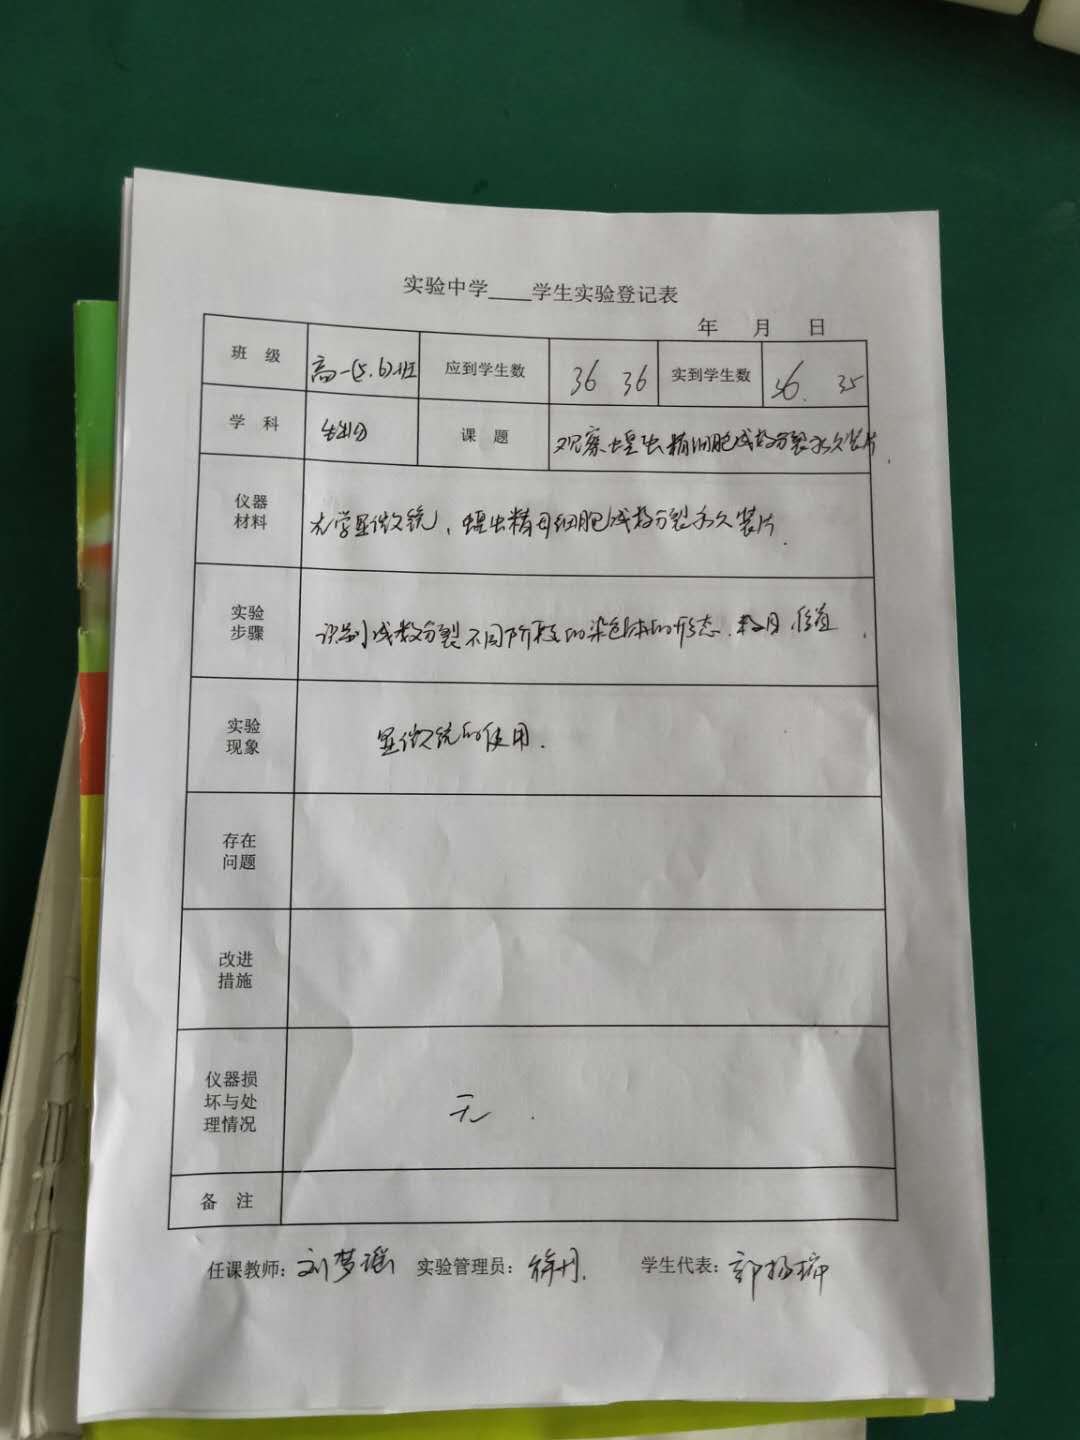 实验中学____学生实验登记表
年 月 日
班 级 高一(5.6)班 应到学生数 36 36 实到学生数 36. 35
学 科 生物 课 题 观察蝗虫精细胞减数分裂永久装片.
仪器
材料
光学显微镜、蝗虫精母细胞减数分裂永久装片.
实验
步骤
识别减数分裂不同阶段的染色体的形态.数目.位置.
实验
现象
显微镜的使用.
存在
问题
改进
措施
仪器损
坏与处
理情况
无.
备 注
任课教师: 刘梦瑶 实验管理员: 徐丹. 学生代表: 郭杨